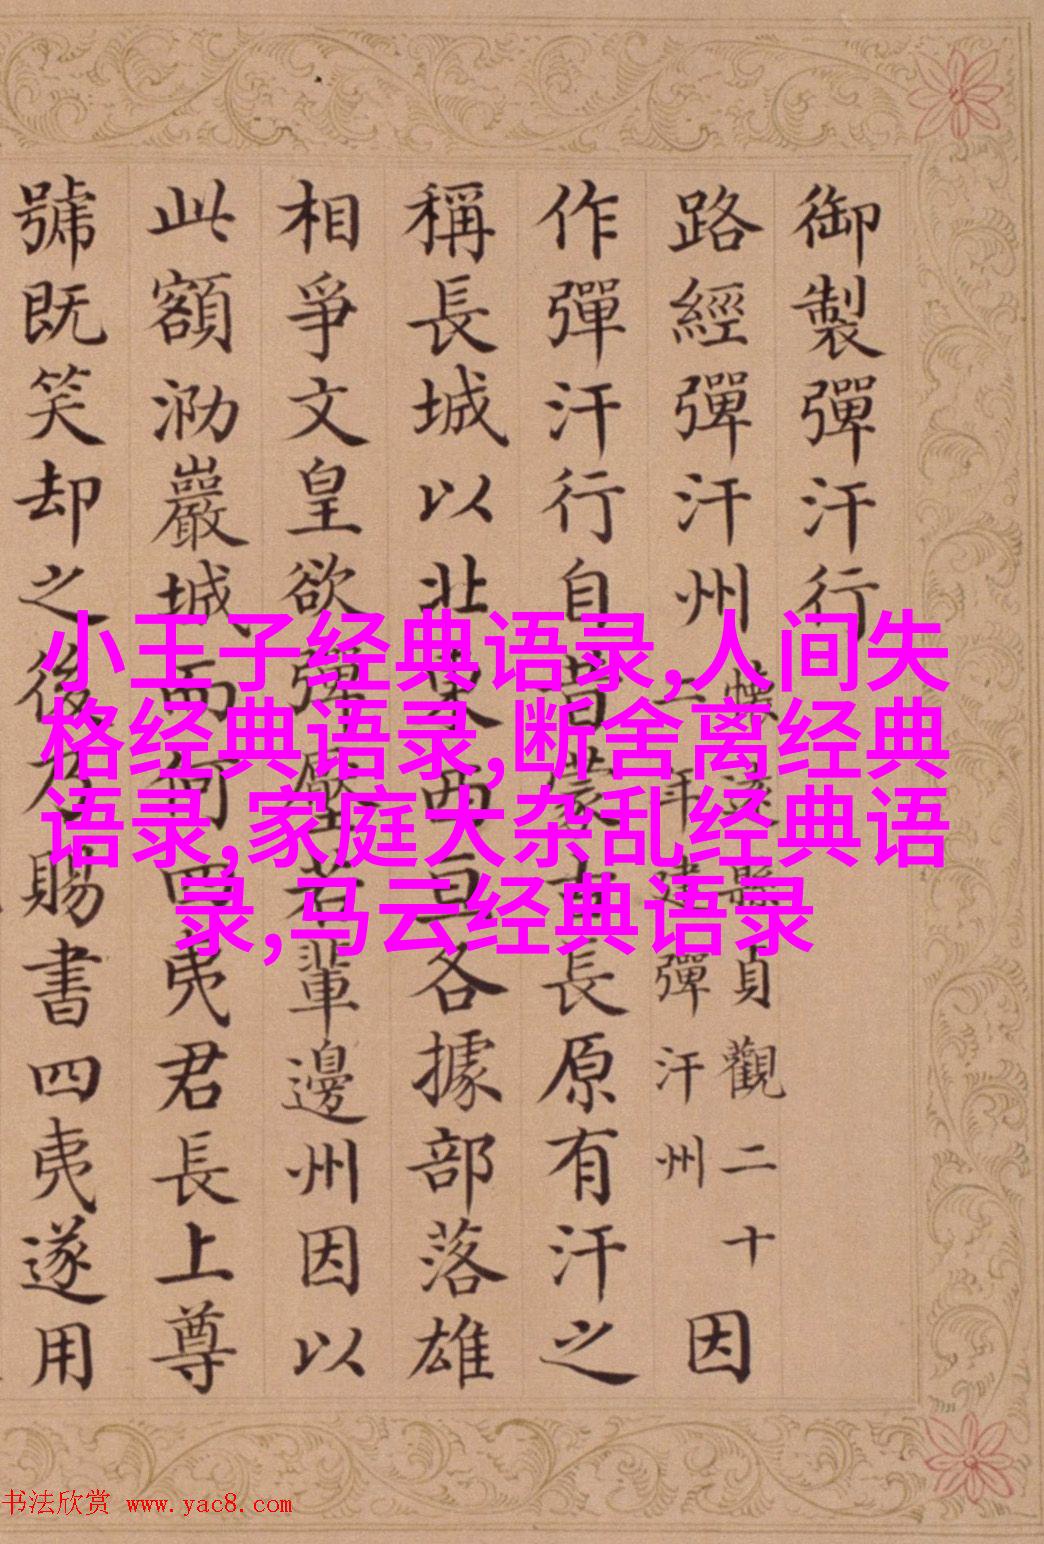 御製彈汗行
路經彈汗州
縣貞觀二十
年建彈汗州
因
作彈汗行自昔蒙古長原有汗之
稱長城以北東西亘各據部落雄
相爭文皇欲彈壓若輩邊州因以
此額泐巖城而何四夷君長上尊
號既笑却之後乃賜書四夷遂用
小王子经典语录,人间失
格经典语录,断舍离经典
语录,家庭大杂乱经典语
录,马云经典语录
书法欣赏 www.yac8.com